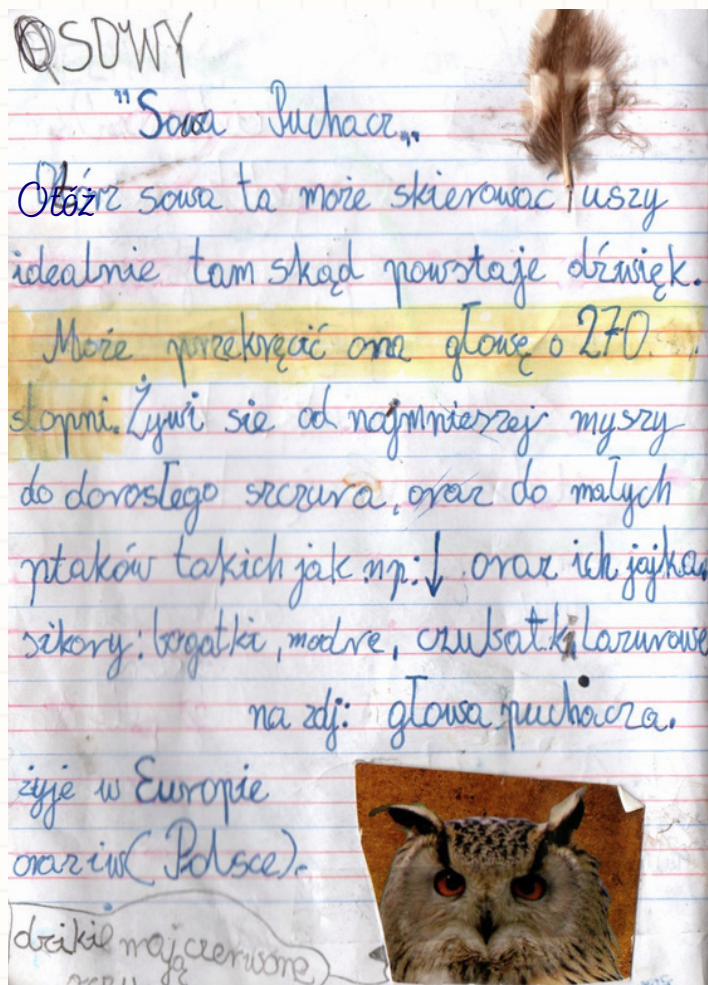 SOWY
"Sowa Puchacz„
Otóż sowa ta może skierować uszy
idealnie tam skąd powstaje dźwięk.
Może przekręcić ona głowę o 270
stopni. Żywi się od najmnieszej myszy
do dorosłego szczura, oraz do małych
ptaków takich jak np:↓ oraz ich jajka.
sikory: bogatki, modre, czubatki, lazurowe
na zdj: głowa puchacza.
żyje w Europie
oraz iw (Polsce).
mają czerwone
oczy